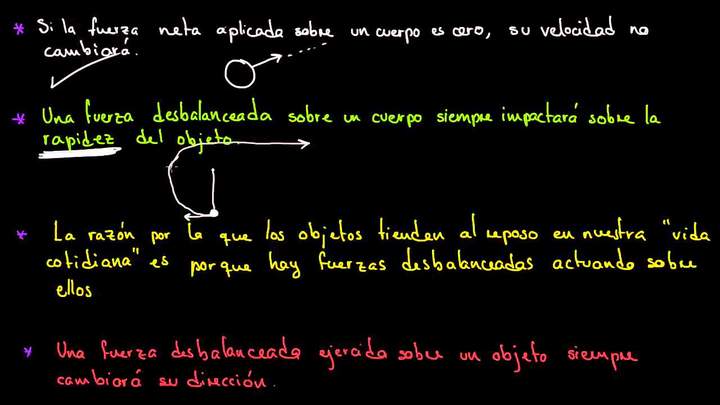 * Si la fuerza neta aplicada sobre un cuerpo es cero, su velocidad no
cambiará.
* Una fuerza desbalanceada sobre un cuerpo siempre impactará sobre la
rapidez del objeto.
* La razón por la que los objetos tienden al reposo en nuestra "vida
cotidiana" es porque hay fuerzas desbalanceadas actuando sobre
ellos
* Una fuerza desbalanceada ejercida sobre un objeto siempre
cambiará su dirección.